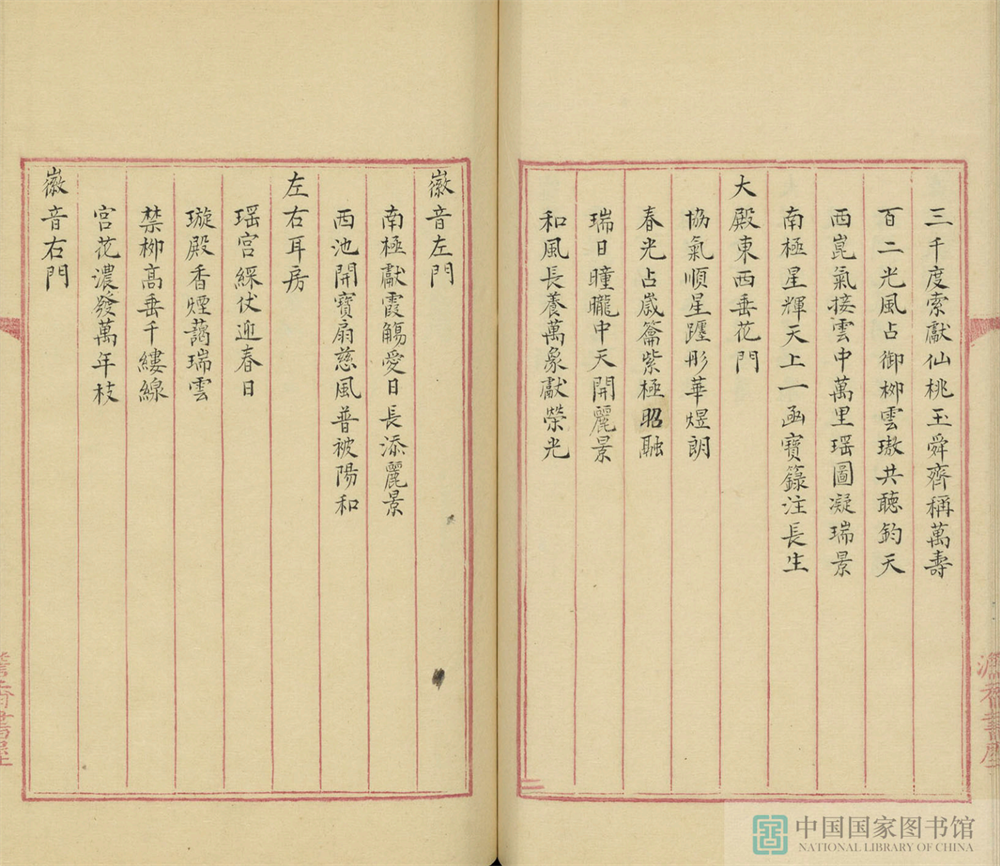 三千度索獻仙桃玉舜齊稱萬壽
百二光風占御柳雲璈共聽鈞天
西崑氣接雲中萬里瑶圖凝瑞景
南極星輝天上一函寶籙注長生
大殿東西垂花門
協氣順星躔彤華煜朗
春光占歲籥紫極昭融
瑞日曈曨中天開麗景
和風長養萬象獻榮光
徽音左門
南極獻霞觴愛日長添麗景
西池開寶扇慈風普被陽和
左右耳房
瑶宫綵伏迎春日
璇殿香煙藹瑞雲
禁柳髙垂千縷線
宫花濃發萬年枝
徽音右門
中国国家图书馆
NATIONAL LIBRARY OF CHINA